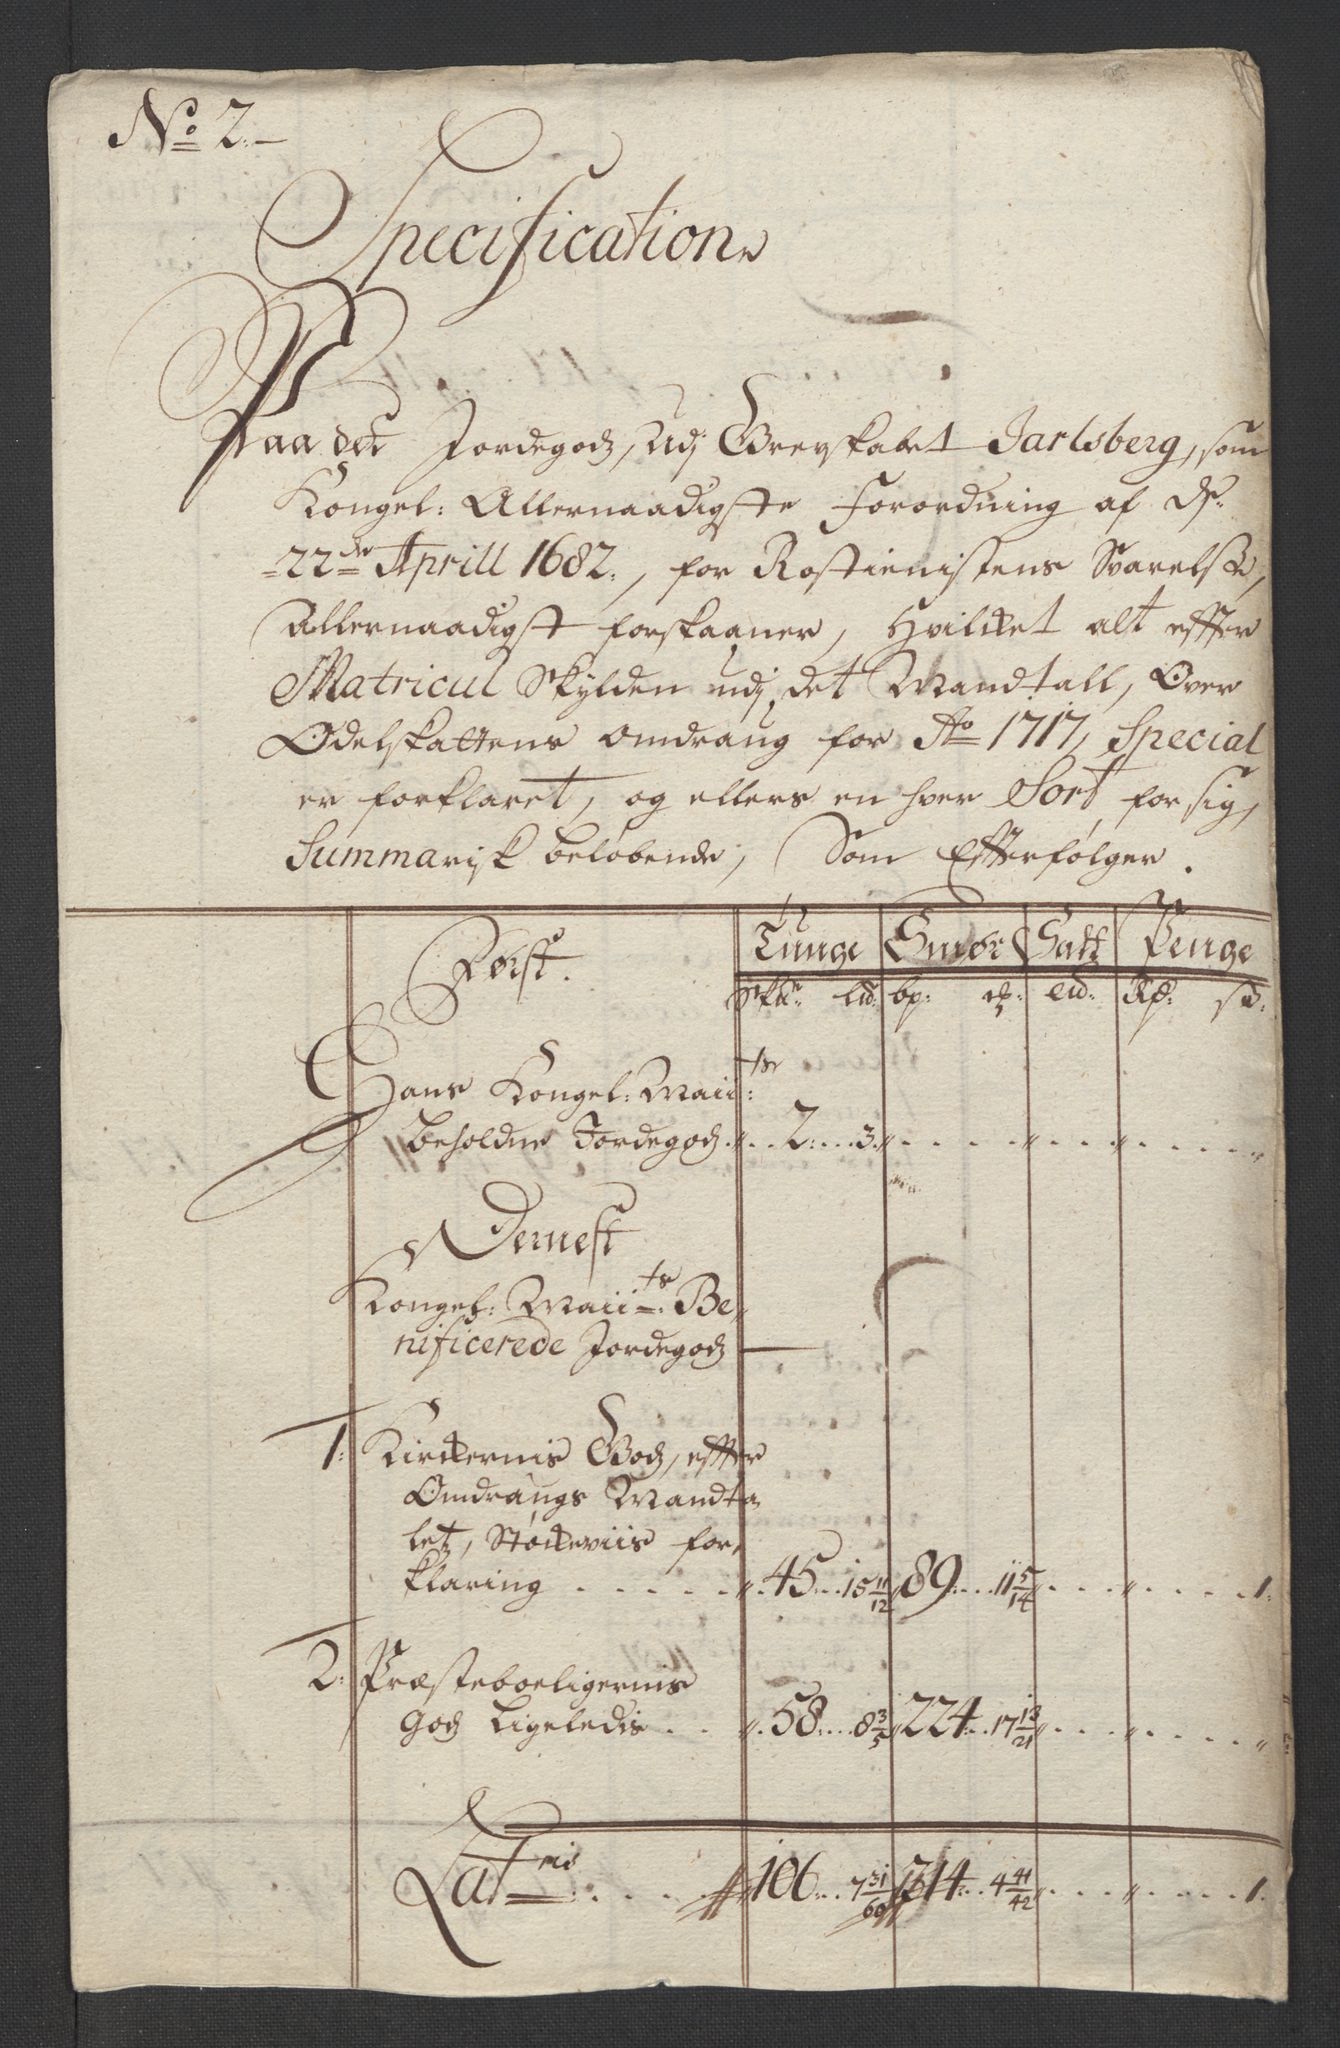 No 2.
Specification
Paa det Jordegods, Udj Grevskabet Jarlsberg, som
Kongel: Allernaadigste Forordning af d:
22de Aprill 1682, for Rostienistens Svarelse,
Allernaadigst forskaaner, Hvilcket alt effter
Matricul Skylden udj det Mandtall, Over
Odelskattens omdraug for Ao 1717, Special
er forklaret, og ellers en hver Sort for sig,
Summarisk beløbende, Som Efterfølger.
Først. Tunge Smør Salt Penge
Skll: lid: bp: lid: Rd: s:
Hans Kongel: Maiits:
beholdne Jordegods 2 3
Dernest
Kongel: Maiits: Be-
nificerede Jordegods
1: Kirckernis Gods, effter
Omdraugs Mandta
let, Støckeviis for-
klaring 45 15 11/12 89 11 5/14 1
2: Præsteboeligernis
Gods Ligeledis 58 8 3/5 224 17 13/21
Lateris 106 7 31/60 314 4 41/42 1